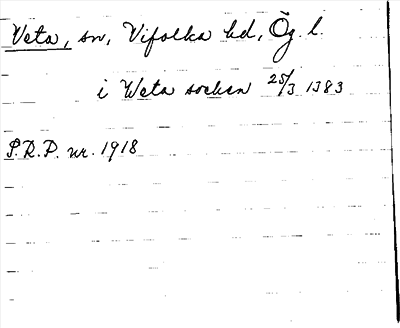 Veta, sn, Vifolka hd, Ög. l.
i Weta sochen 25/3 1383
S.R.P. nr. 1918